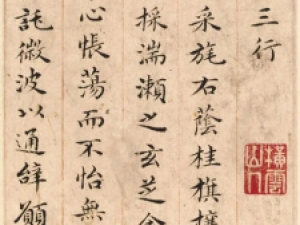 三行
采旄右蔭桂旗攘
採湍瀨之玄芝余
心悵蕩而不怡無
託微波以通辭願
橫雲山人